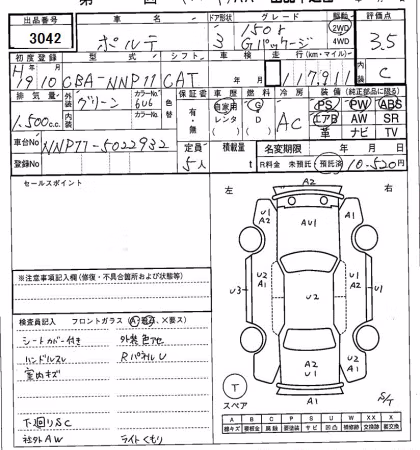 出品番号 車名 ドア形状 グレード 駆動 評価点
3042 ポルテ 3 150r Gパッケージ 2WD 4WD 3.5
初度登録 型式 シフト 車検 走行(km・マイル) 内装
H19年10月 CBA-NNP11 CAT 117,911 C
排気量 外装 グリーン カラーNo. 6U6 色替 保証書 車歴 燃料 冷房 装備(純正部品に限る)
1,500c.c. 内装 カラーNo. 有・無 自家用 レンタ ( ) G D ( ) AC PS PW ABS
エアB AW SR
革 ナビ TV
車台No NNP11-5022932 定員 積載量 名変期限 年 月 日
登録No 5人 t R料金 未預託・預託済 10,520円
セールスポイント
左 右
A2
U1 A2 AU1 A1
U3 U2 A1 U2 U2 A1 U1
A2 U1 U2 A1
T スペア
S/T
※注意事項記入欄(修復・不具合箇所および状態等)
検査員記入 フロントガラス(A・飛石、×要ス)
シートカバー付き 外装色アセ
ハンドルスレ RパネルU
室内キズ
T-回りSC
社外AW ライトくもり
A B C P S U W XX X
線キズ 要板金 腐食 要塗装 サビ 凹凸 補修跡 交換跡 要交換